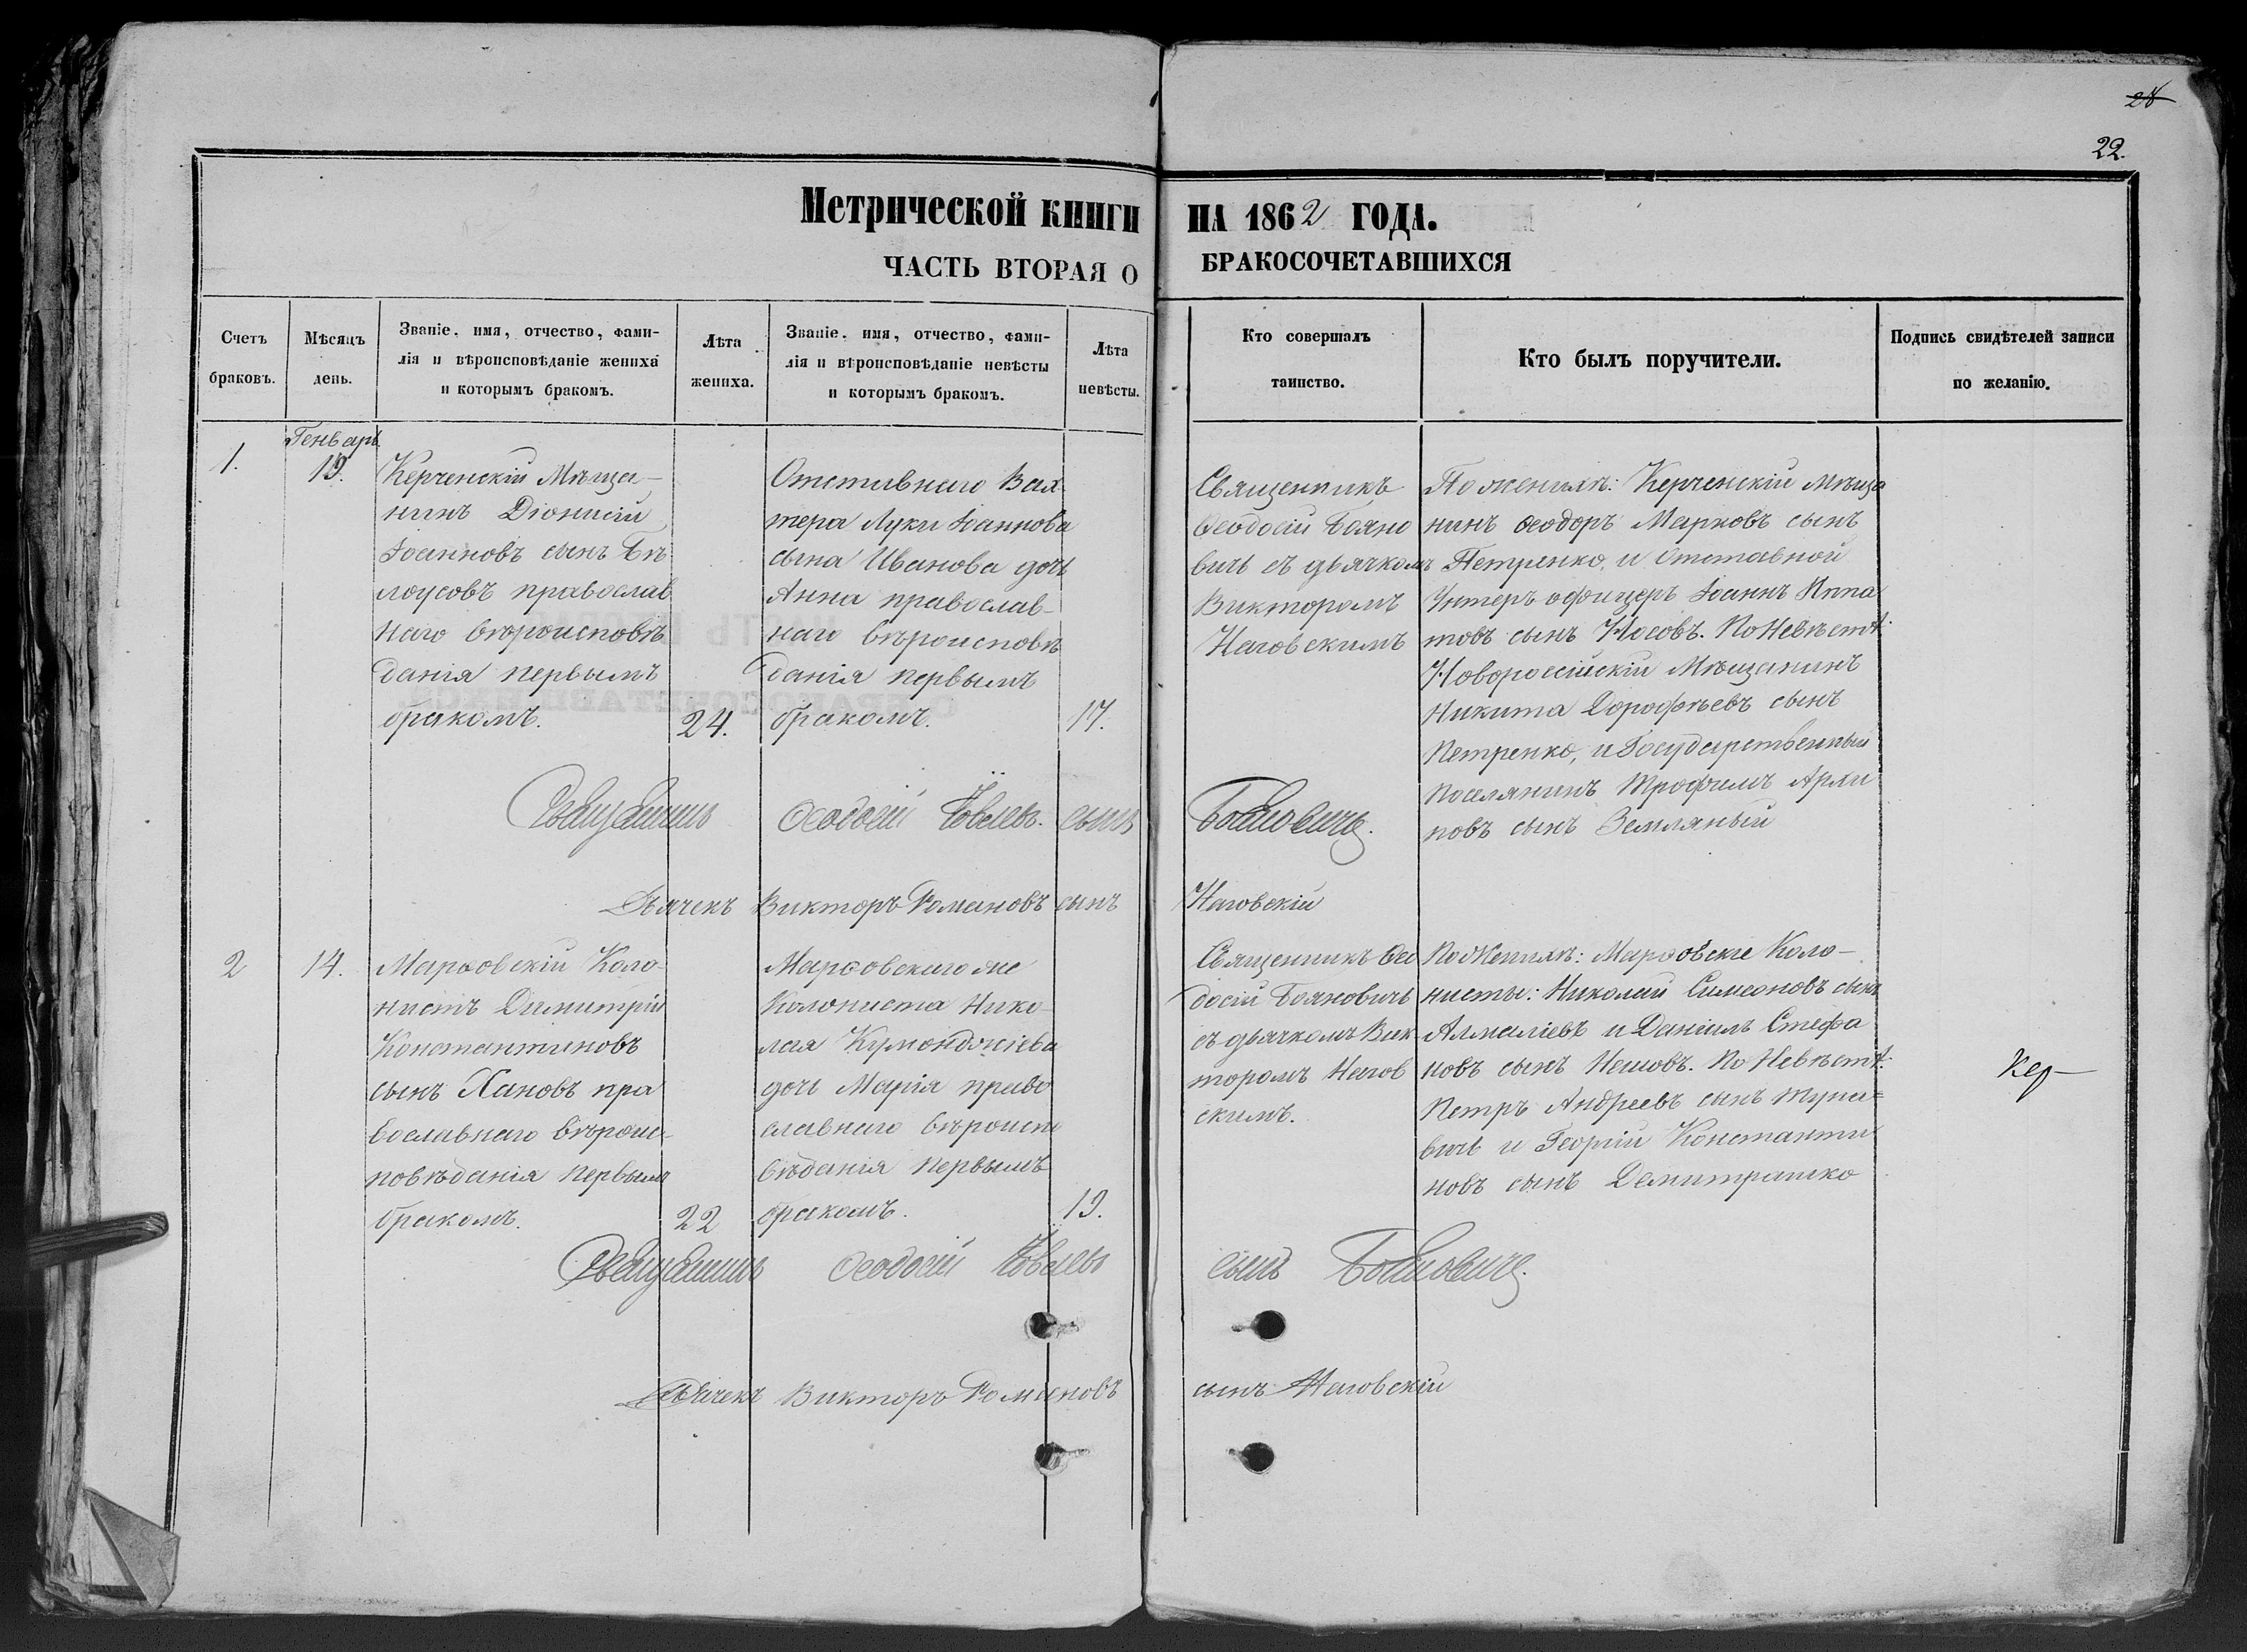 28
22.
Метрической книги НА 1862 ГОДА.
ЧАСТЬ ВТОРАЯ О БРАКОСОЧЕТАВШИХСЯ
Счетъ
браковъ.
Мѣсяцъ
день.
Званіе, имя, отчество, фами-
лія и вѣроисповѣданіе жениха
и которымъ бракомъ.
Лѣта
жениха.
Званіе, имя, отчество, фами-
лія и вѣроисповѣданіе невѣсты
и которымъ бракомъ.
Лѣта
невѣсты.
Кто совершалъ
таинство.
Кто былъ поручители.
Подпись свидѣтелей записи
по желанію.
1.
Генварь
Керченскій Мѣща-
нинъ Діонисій
Іоанновъ сынъ Бѣ
лоусовъ православ
наго вѣроисповѣ
данія первымъ
бракомъ.
24.
Отставнаго Вах
тера Луки Іоаннова
сына Иванова дочь
Анна православ-
наго вѣроисповѣ
данія первымъ
бракомъ.
17.
Священникъ
Ѳеодосій Бояно
вичь съ дьячкомъ
Викторомъ
Наговскимъ
По женихѣ: Керченскій мѣща
нинъ Ѳеодоръ Марковъ сынъ
Петренко, и Отставной
Унтеръ офицеръ Іоаннъ Ипа
товъ сынъ Носовъ. По Невѣстѣ:
Новоросiйскій Мѣщанинъ
Никита Дорофѣевъ сынъ
Петренко, и Государственный
поселянинъ Трофимъ Архи
повъ сынъ Земляный
Священникъ Ѳеодосій Іовлевъ сынъ Бояновичь.
Дьячекъ Викторъ Романовъ сынъ Наговскій
2
14.
Марѳовскій Коло-
нистъ Димитрій
Константиновъ
сынъ Пановъ пра
вославнаго вѣроис-
повѣданія первымъ
бракомъ.
22
Марѳовскаго же
Колониста Нико-
лая
дочь Марія право
славнаго вѣроиспо
вѣданія первымъ
бракомъ.
19.
Священникъ Ѳео
досій Бояновичь
съ дьячкомъ Вик-
торомъ Нагов
скимъ.
По Женихѣ: Марѳовскіе Коло-
нисты: Николай Симеоновъ сынъ
Алмаліевъ и Даніилъ Стефа
новъ сынъ По Невѣстѣ:
Петръ Андреевъ сынъ
вичь и Георгій Константи
новъ сынъ Демитрашко
Священникъ Ѳеодосій Іовлевъ сынъ Бояновичь.
Дьячекъ Викторъ Романовъ сынъ Наговскій
Кер-